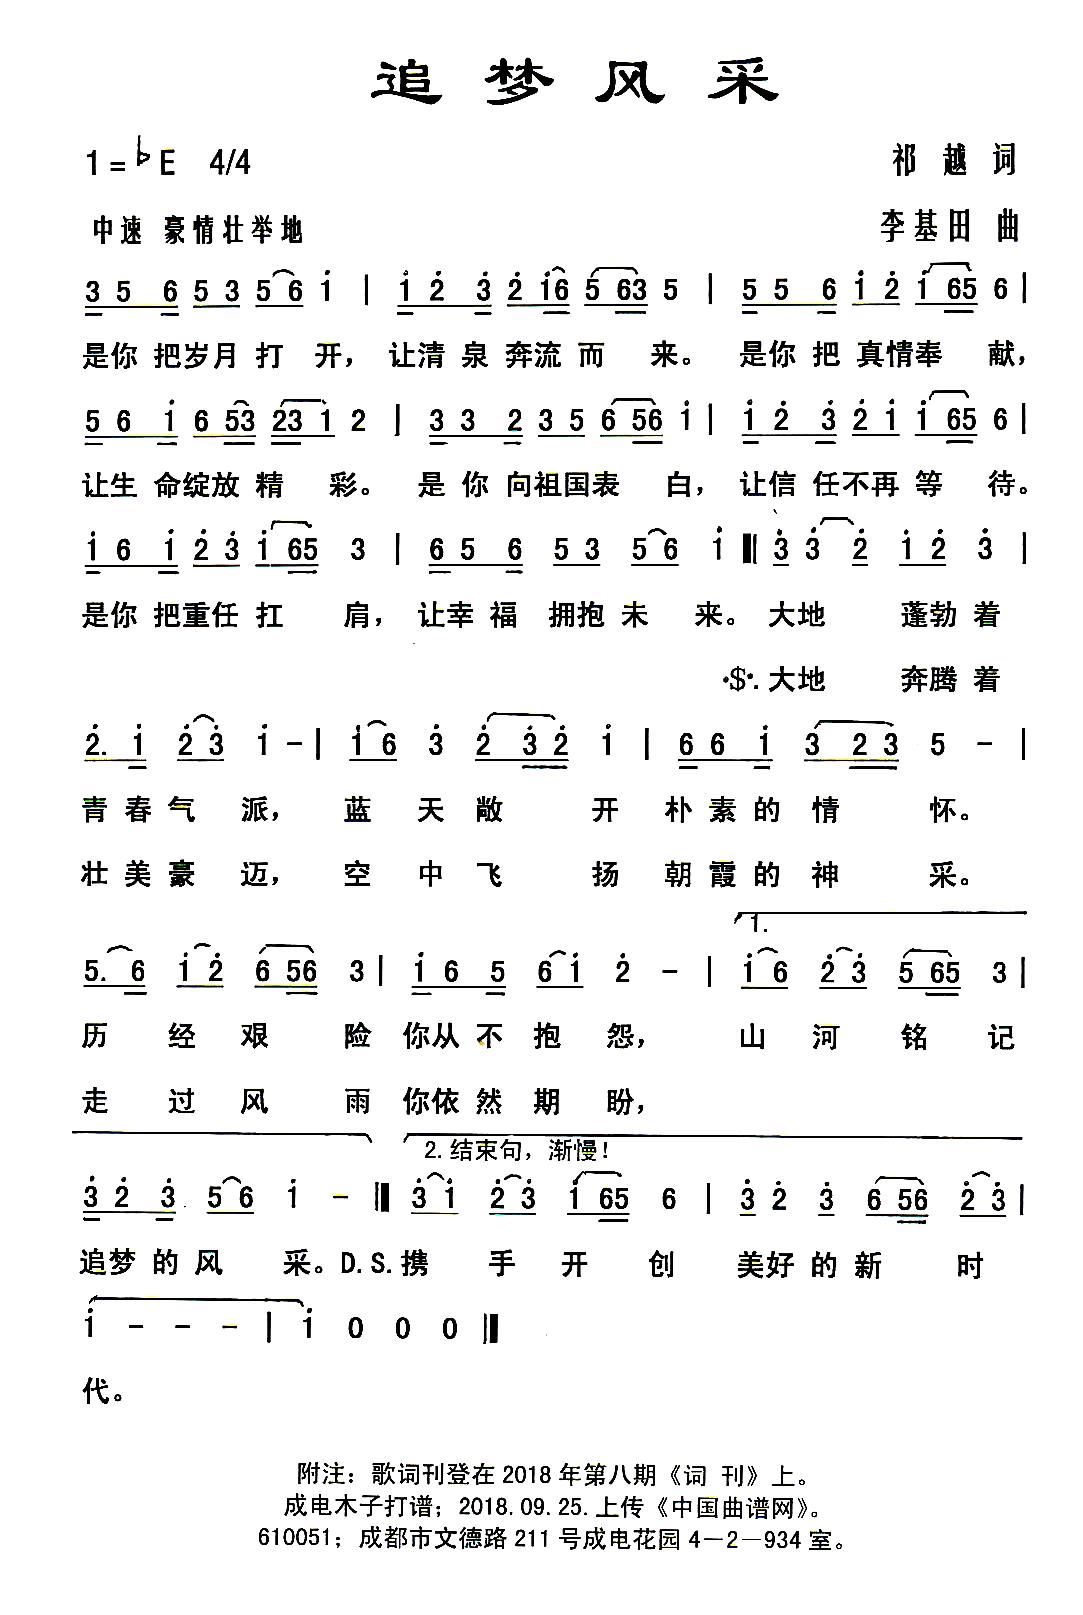 追梦风采
1=♭E 4/4 祁越词
中速 豪情壮举地 李基田 曲
3 5 6 5 3 5 6 i | i 2 3 2 i6 5 63 5 | 5 5 6 i 2 i 65 6 |
是你 把岁月 打 开， 让清 泉 奔流 而 来。 是你 把 真情奉 献，
5 6 i 6 53 23 1 2 | 3 3 2 3 5 6 56 i | i 2 3 2 i i 65 6 |
让生 命绽放 精 彩。 是 你 向祖国表 白， 让信 任不再 等 待。
i 6 i 2 3 i 65 3 | 6 5 6 5 3 5 6 i 3 3 2 i 2 3 |
是你 把重任 扛 肩， 让幸 福 拥抱 未 来。 大地 蓬勃 着
·$·. 大地 奔腾 着
2. i 2 3 i - | i 6 3 2 3 2 i | 6 6 i 3 2 3 5 - |
青 春 气 派， 蓝 天 敞 开 朴 素 的 情 怀。
壮 美 豪 迈， 空 中 飞 扬 朝 霞 的 神 采。
1.
5. 6 i 2 6 56 3 | i 6 5 6 i 2 - | i 6 2 3 5 65 3 |
历 经 艰 险 你从 不 抱 怨， 山 河 铭 记
走 过 风 雨 你依 然 期 盼，
2. 结束句，渐慢！
3 2 3 5 6 i - 3 i 2 3 i 65 6 | 3 2 3 6 56 2 3 |
追梦 的 风 采。D.S.携 手 开 创 美好 的 新 时
i - - - | i 0 0 0
代。
附注：歌词刊登在 2018 年第八期《词 刊》上。
成电木子打谱；2018.09.25.上传《中国曲谱网》。
610051；成都市文德路 211 号成电花园 4－2－934 室。